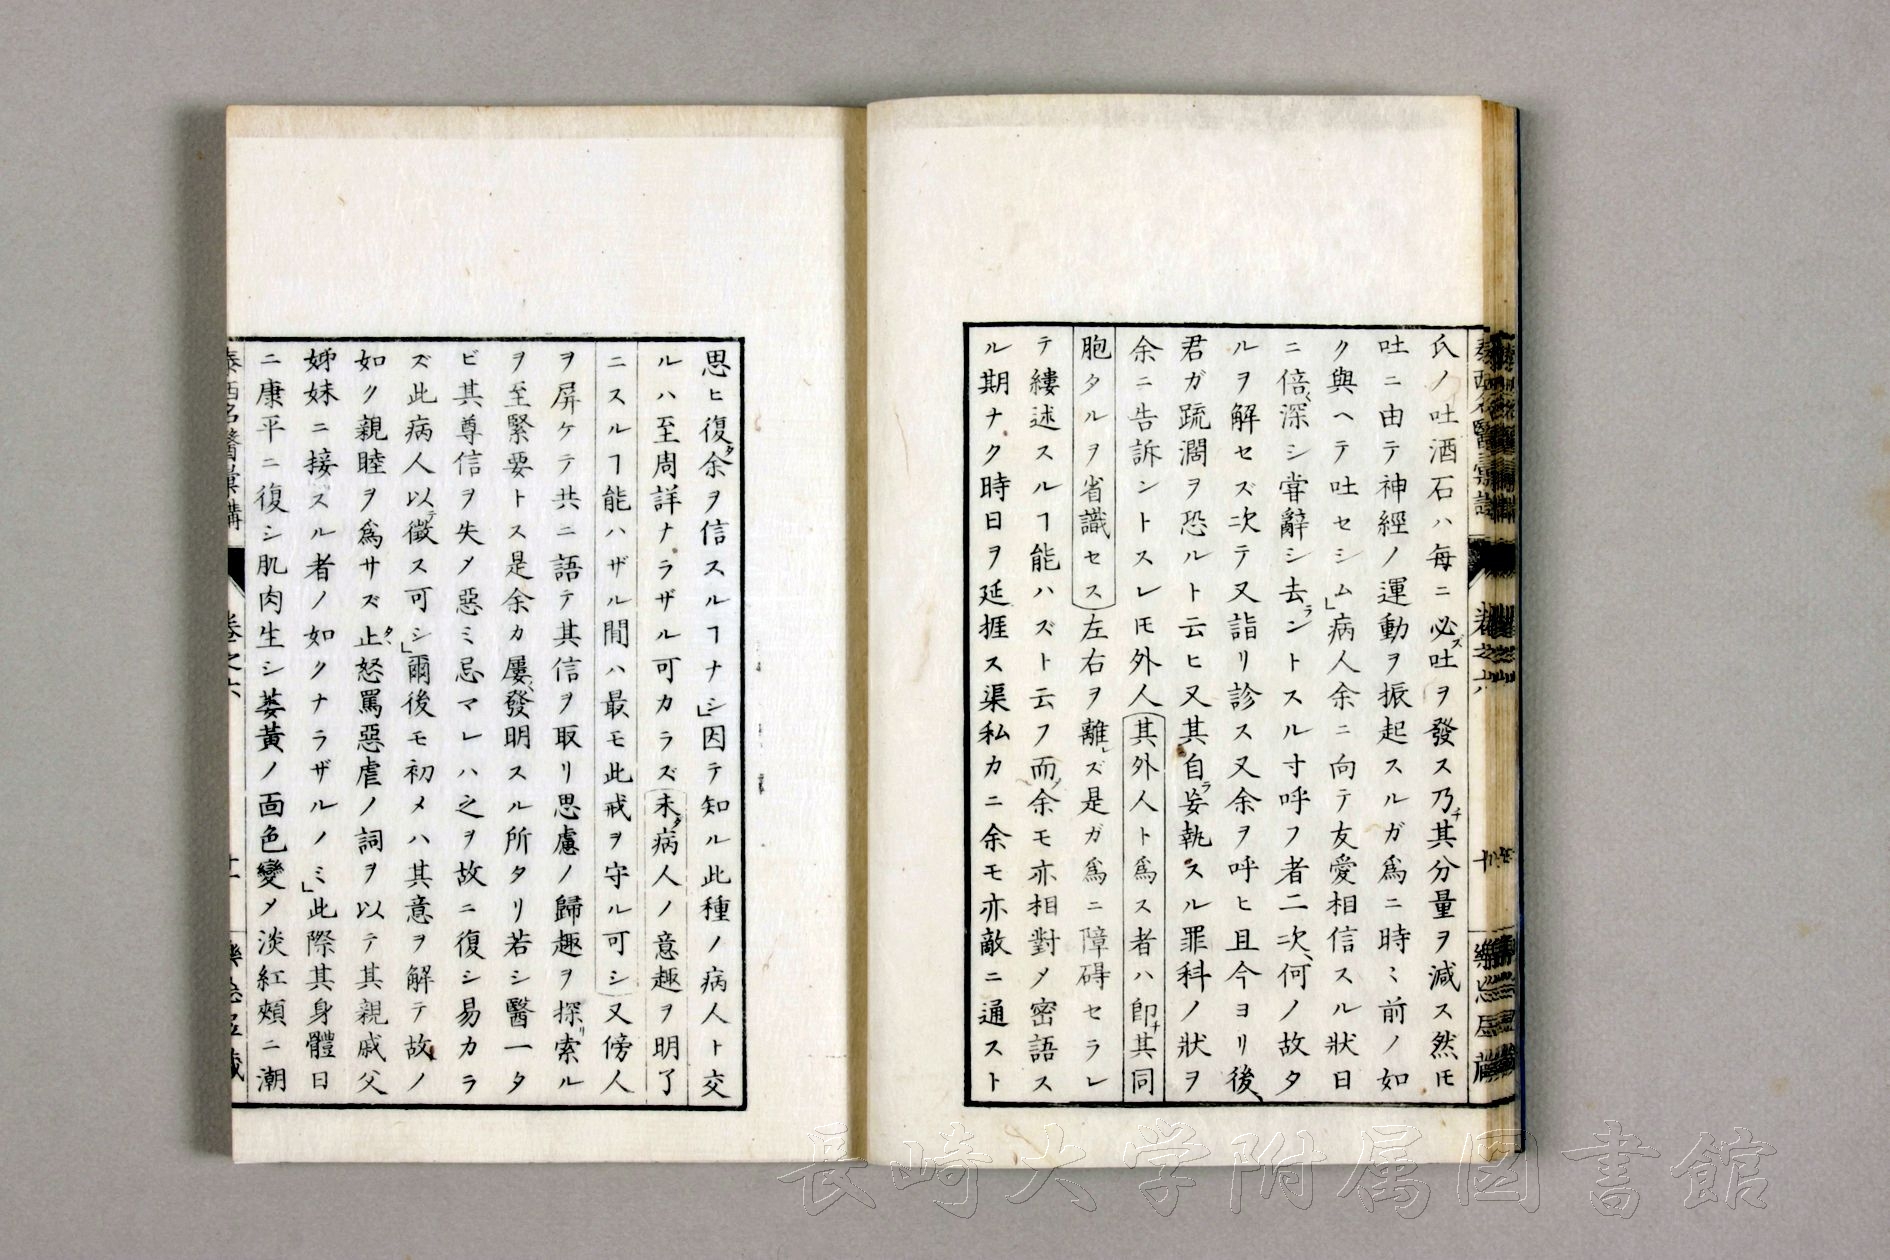 氏ノ吐酒石ハ毎ニ必ズ吐ヲ發ス乃チ其分量ヲ減ス然ㇺ
吐ニ由テ神經ノ運動ヲ振起スルガ爲ニ時ミ前ノ如
ク與ヘテ吐セシム」病人余ニ向テ友愛相信スル狀日
ニ倍〻深シ甞辭シ去ラントスル寸呼フ者二次、何ノ故タ
ルヲ解セズ次テ又詣リ診ス又余ヲ呼ヒ且今ヨリ後、
君ガ疏濶ヲ恐ルト云ヒ又其自ラ妄執スル罪科ノ狀ヲ
余ニ告訴ントスレㇺ外人其外人ト爲ス者ハ卽チ其同
胞タルヲ省識セス左右ヲ離レズ是ガ爲ニ障碍セラレ
テ縷述スルヿ能ハズト云フ而ノ余モ亦相對メ密語ス
ル期ナク時日ヲ延捱ス渠私カニ余モ亦敵ニ通スト
泰西名醫彙講
卷之六
十
樂
思ヒ復タ余ヲ信スルヿナシ」因テ知ル此種ノ病人ト交
ルハ至周詳ナラザル可カラズ未タ病人ノ意趣ヲ明了
ニスルヿ能ハザル間ハ最モ此戒ヲ守ル可シ又傍人
ヲ屏ケテ共ニ語テ其信ヲ取リ思慮ノ歸趣ヲ探リ索ル
ヲ至緊要トス是余カ屢〻發明スル所タリ若シ醫一タ
ビ其尊信ヲ失メ惡ミ忌マレハ之ヲ故ニ復シ易カラ
ズ此病人以テ徵ス可シ」爾後モ初メハ其意ヲ解テ故ノ
如ク親睦ヲ爲サズ止タ怒罵惡虐ノ詞ヲ以テ其親戚父
姊妹ニ接スル者ノ如クナラザルノミ」此際其身體日
ニ康平ニ復シ肌肉生シ萎黃ノ面色變メ淡紅頰ニ潮
泰西名醫彙講
卷之六
十一